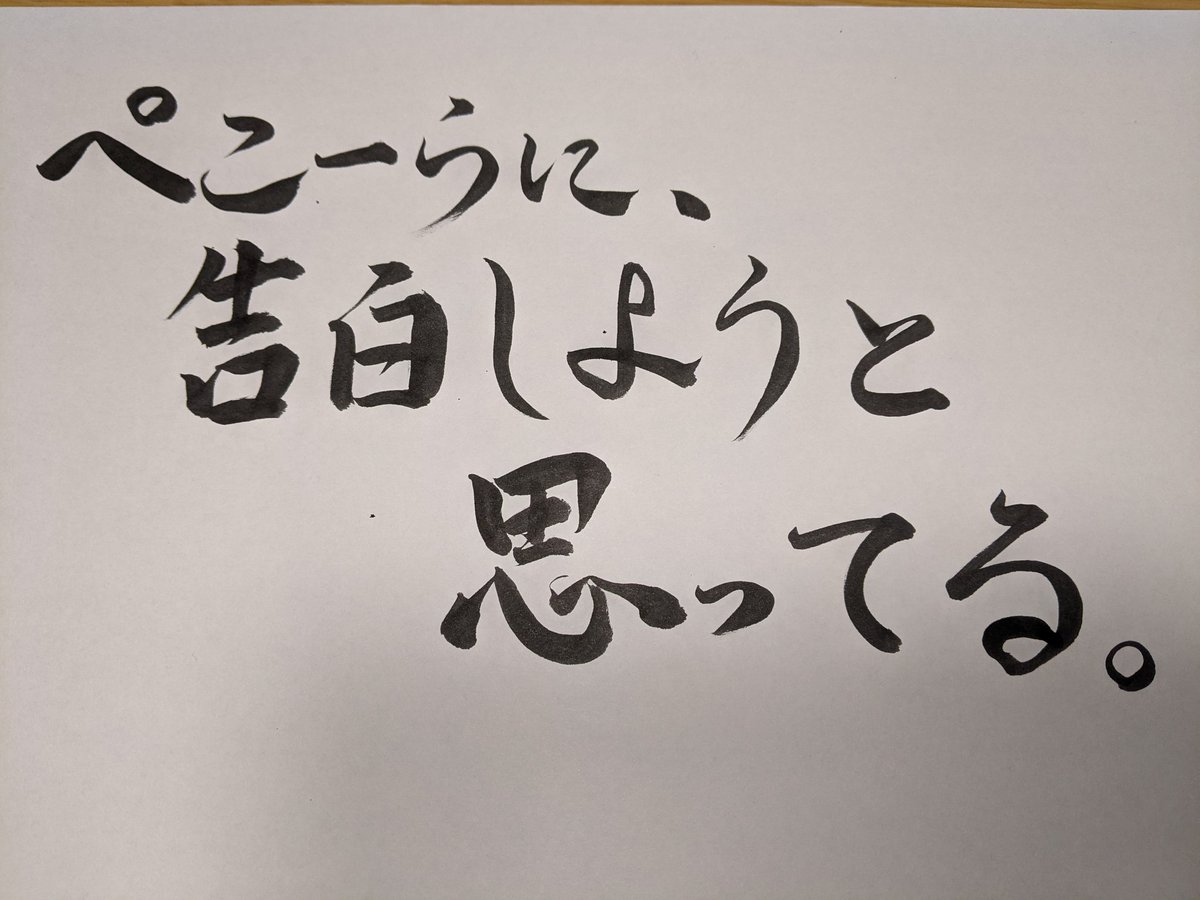 ぺこーらに、
告白しようと
思ってる。